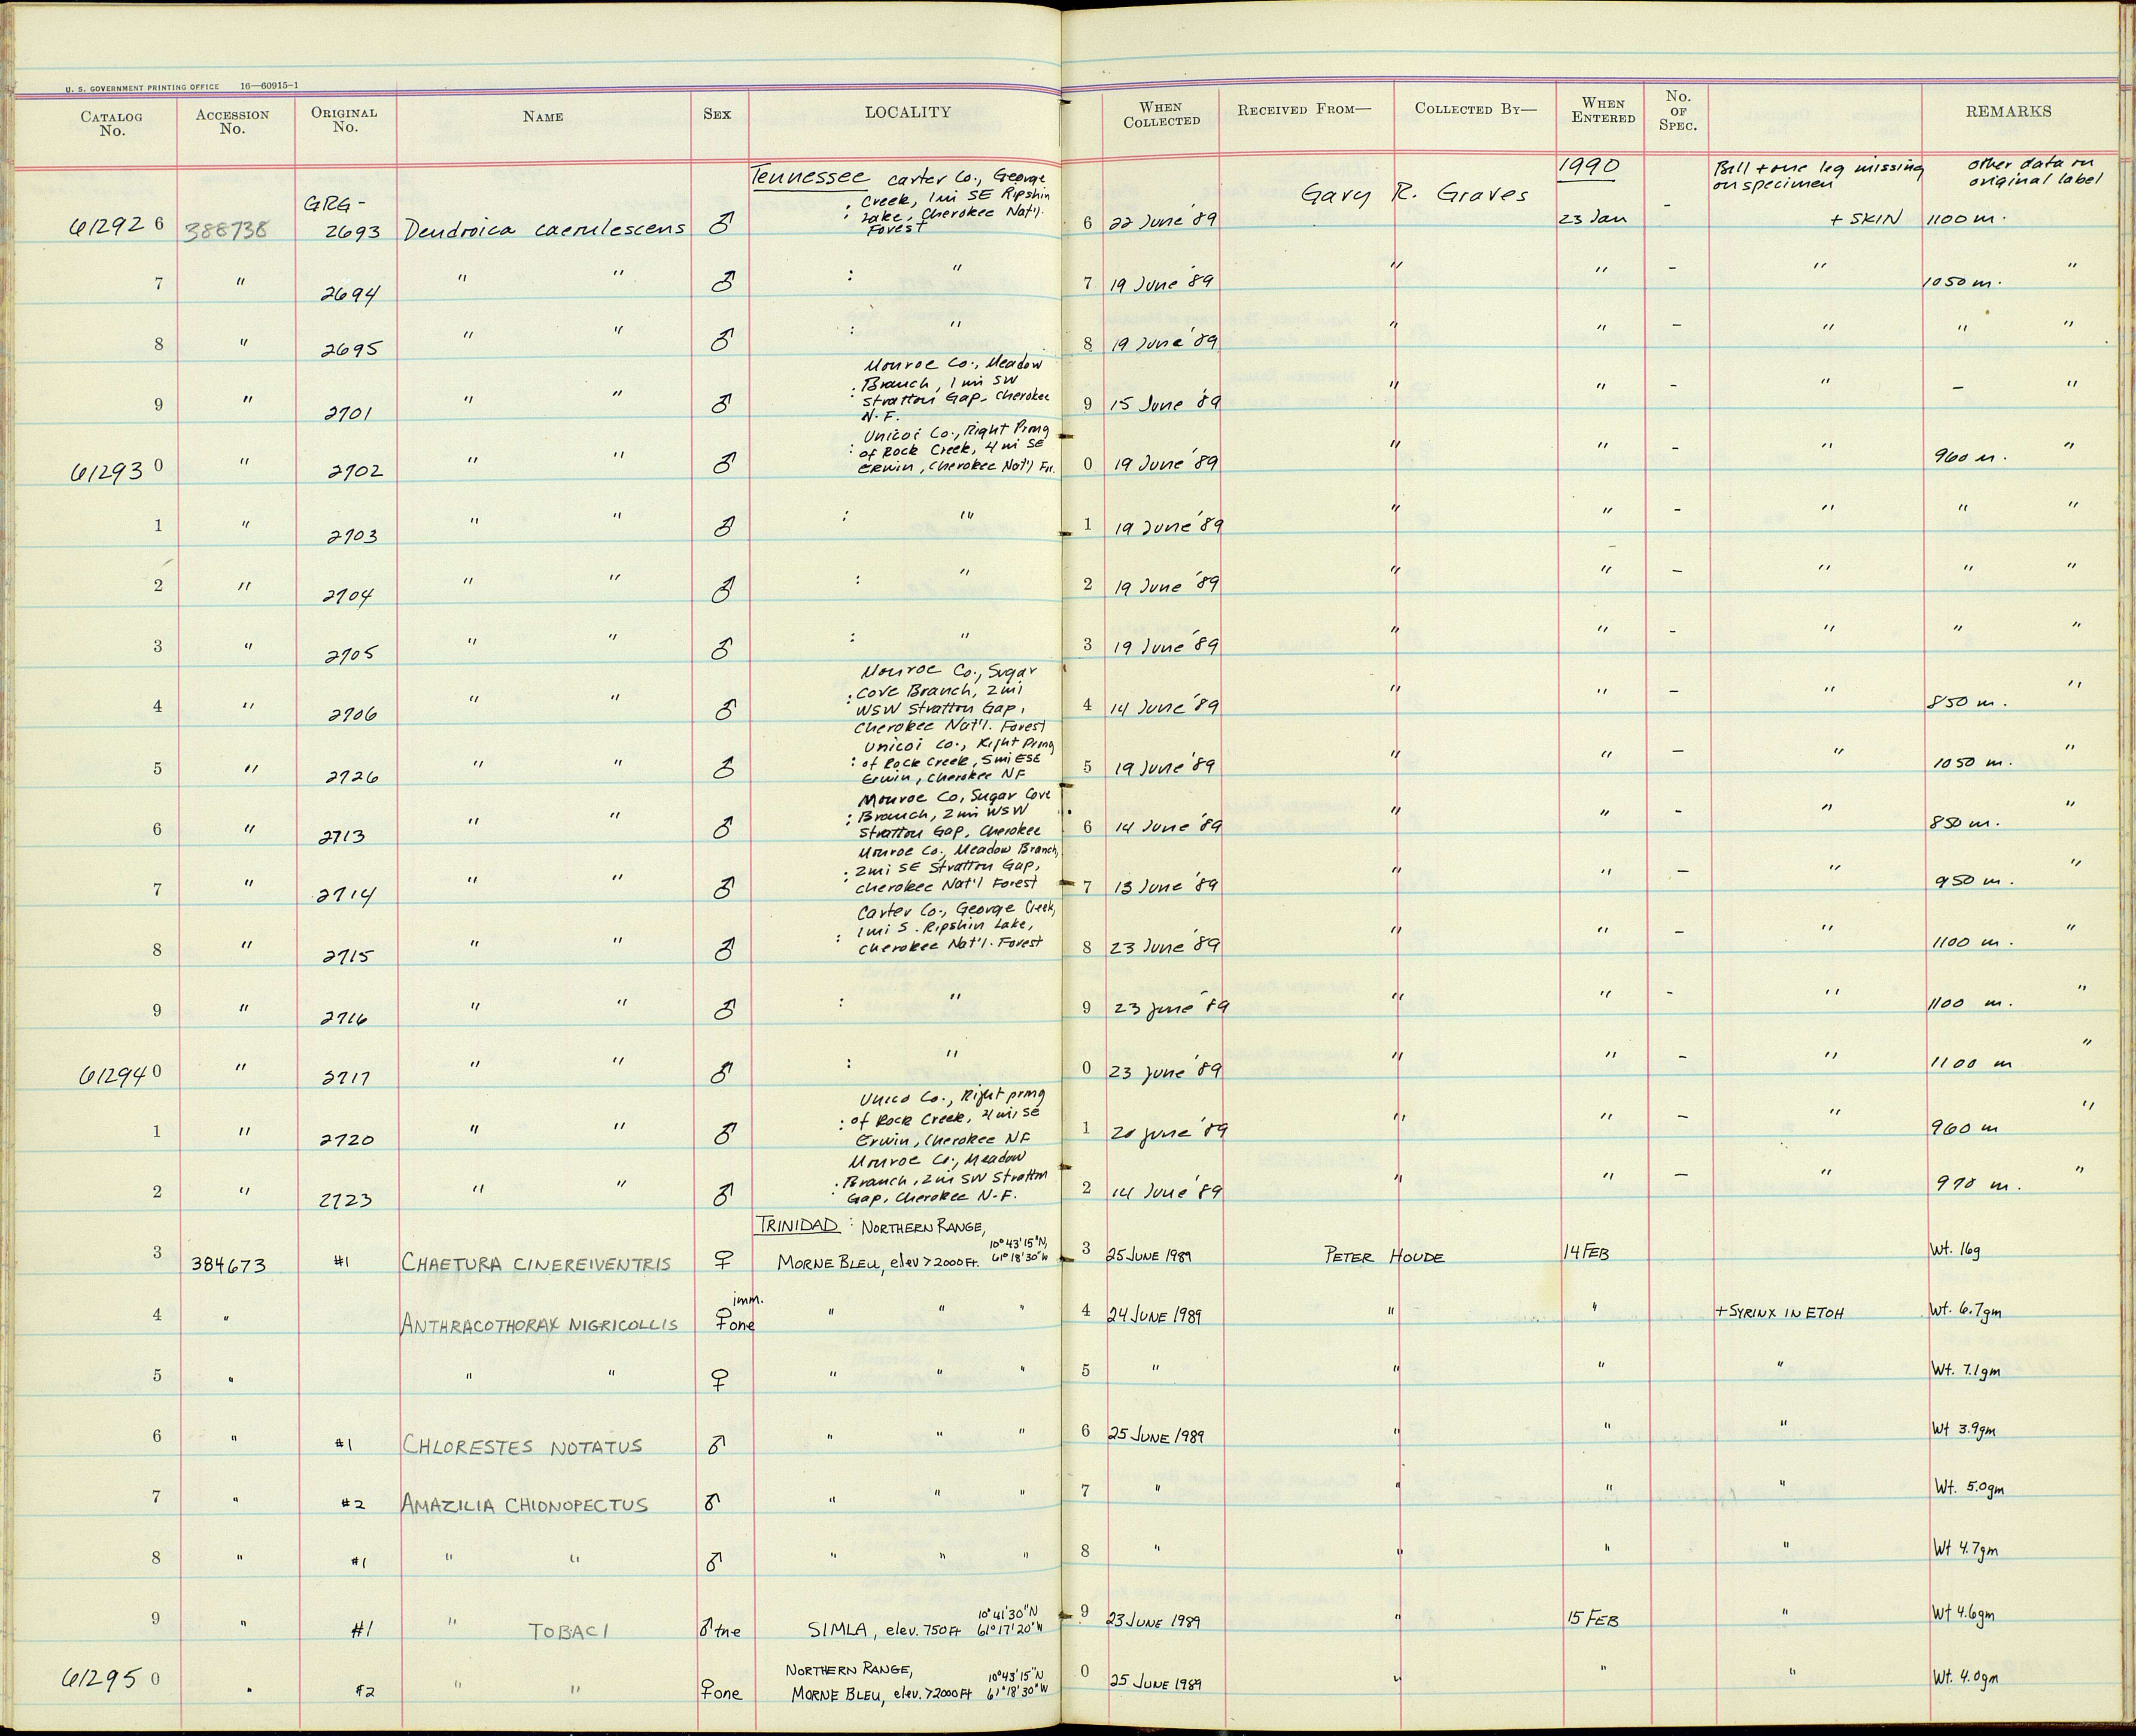 U. S. GOVERNMENT PRINTING OFFICE 16—60915-1
CATALOG No. ACCESSION No. ORIGINAL No. NAME SEX LOCALITY WHEN COLLECTED RECEIVED FROM— COLLECTED BY— WHEN ENTERED No. OF SPEC. REMARKS
Tennessee Carter Co., George 1990 Bill + one leg missing other data on
: Creek, 1 mi SE Ripshin Gary R. Graves on specimen original label
GRG- Lake, Cherokee Nat'l.
612926 388738 2693 Dendroica caerulescens ♂ Forest 6 22 June '89 23 Jan - + SKIN 1100 m.
7 " 2694 " " ♂ : " 7 19 June '89 " " - " 1050 m. "
8 " 2695 " " ♂ : " 8 19 June '89 " " - " " "
Monroe Co., Meadow
: Branch, 1 mi SW
Stratton Gap, Cherokee
9 " 2701 " " ♂ N.F. 9 15 June '89 " " - " - "
Unicoi Co., Right Prong
: of Rock Creek, 4 mi SE
612930 " 2702 " " ♂ Erwin, Cherokee Nat'l Fr. 0 19 June '89 " " - " 960 m. "
1 " 2703 " " ♂ : " 1 19 June '89 " " - " " "
2 " 2704 " " ♂ : " 2 19 June '89 " " - " " "
3 " 2705 " " ♂ : " 3 19 June '89 " " - " " "
Monroe Co., Sugar
: Cove Branch, 2 mi
4 " 2706 " " ♂ WSW Stratton Gap, 4 14 June '89 " " - " 850 m. "
Cherokee Nat'l. Forest
Unicoi Co., Right Prong
: of Rock Creek, 5 mi ESE
5 " 2726 " " ♂ Erwin, Cherokee NF 5 19 June '89 " " - " 1050 m. "
Monroe Co, Sugar Cove
: Branch, 2 mi WSW
6 " 2713 " " ♂ Stratton Gap, Cherokee 6 14 June '89 " " - " 850 m. "
Monroe Co., Meadow Branch,
: 2 mi SE Stratton Gap,
7 " 2714 " " ♂ Cherokee Nat'l Forest 7 13 June '89 " " - " 950 m. "
Carter Co., George Creek,
: 1 mi S. Ripshin Lake,
8 " 2715 " " ♂ Cherokee Nat'l. Forest 8 23 June '89 " " - " 1100 m. "
9 " 2716 " " ♂ : " 9 23 June '89 " " - " 1100 m. "
612940 " 2717 " " ♂ : " 0 23 June '89 " " - " 1100 m "
Unico Co., Right prong
: of Rock Creek, 4 mi, SE
1 " 2720 " " ♂ Erwin, Cherokee NF 1 20 June '89 " " - " 960 m "
Monroe Co., Meadow
: Branch, 2 mi SW Stratton
2 " 2723 " " ♂ Gap, Cherokee N.F. 2 14 June '89 " " - " 970 m. "
TRINIDAD : NORTHERN RANGE,
10°43'15"N,
3 384673 #1 CHAETURA CINEREIVENTRIS ♀ MORNE BLEU, elev >2000 Ft. 61°18'30"W 3 25 JUNE 1989 PETER HOUDE 14 FEB Wt. 16g
imm.
4 " ANTHRACOTHORAX NIGRICOLLIS ♀one " " " 4 24 JUNE 1989 " " + SYRINX IN ETOH Wt. 6.7gm
5 " " " ♀ " " " 5 " " " " Wt. 7.1gm
6 " #1 CHLORESTES NOTATUS ♂ " " " 6 25 JUNE 1989 " " " Wt 3.9gm
7 " #2 AMAZILIA CHIONOPECTUS ♂ " " " 7 " " " " Wt. 5.0gm
8 " #1 " " ♂ " " " 8 " " " " Wt 4.7gm
10°41'30"N
9 " #1 " TOBACI ♂tne SIMLA, elev. 750 Ft 61°17'20"W 9 23 JUNE 1989 " 15 FEB " Wt 4.6gm
NORTHERN RANGE, 10°43'15"N
612950 " #2 " " ♀one MORNE BLEU, elev. >2000 Ft 61°18'30"W 0 25 JUNE 1989 " " " Wt. 4.0gm